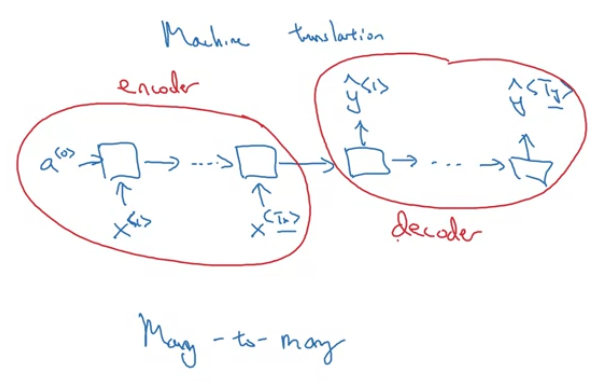 Machine translation
encoder
ŷ<1> ŷ<Ty>
a<0> → → ----→ → → --- →
x<1> x<Tx>
decoder
Many-to-many